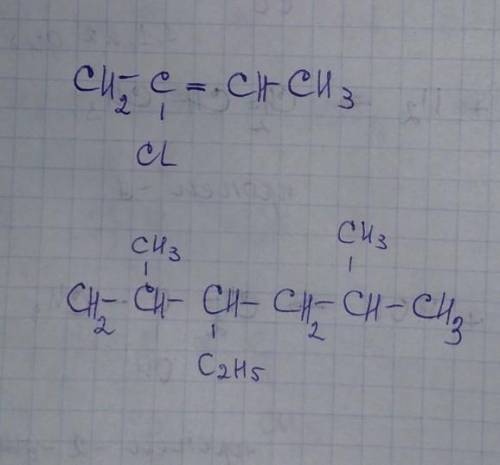 CH₂-C=CH-CH₃
CL
CH₃ CH₃
CH₂-CH-CH-CH₂-CH-CH₃
C₂H₅